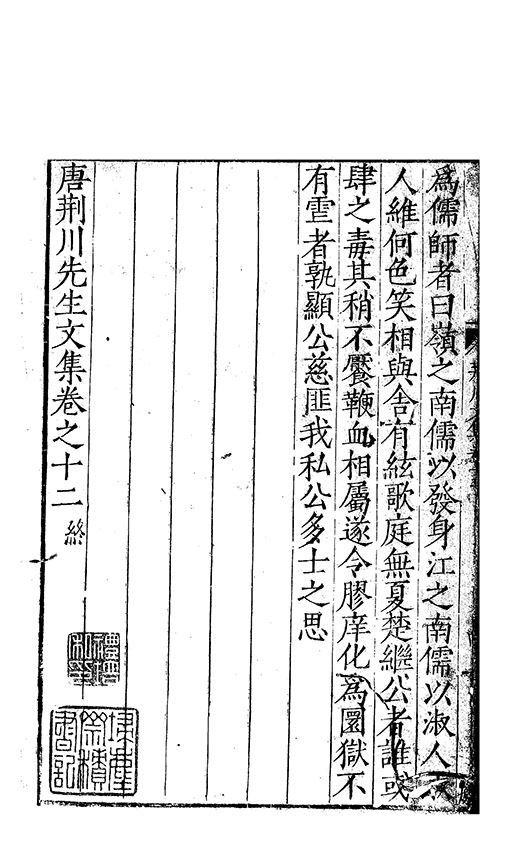 爲儒師者曰嶺之南儒以發身江之南儒以淑人
人維何色笑相與舍有絃歌庭無夏楚繼公者誰或
肆之毒其稍不饜鞭血相屬遂令膠庠化爲圜獄不
有雲者孰顯公慈匪我私公多士之思
唐荆川先生文集卷之十二 終